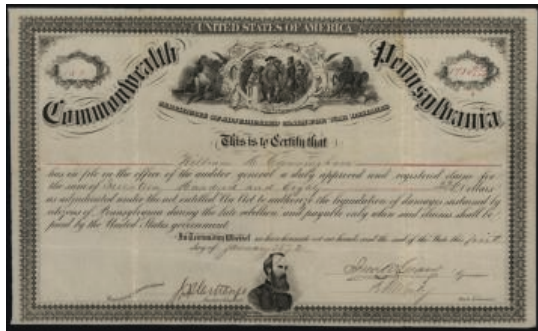 UNITED STATES OF AMERICA
Commonwealth Pennsylvania
CERTIFICATE OF ADJUDICATED CLAIM FOR WAR DAMAGES
This is to Certify that
William H. Cunningham
has on file in the office of the auditor general a duly approved and registered claim for
the sum of Hundred and Eighty Dollars
as adjudicated under the act entitled An Act to authorize the liquidation of damages sustained by
citizens of Pennsylvania during the late rebellion and payable only when said claims shall be
paid by the United States government.
In Testimony Whereof we have hereunto set our hands and the seal of the State this first
day of January 1872